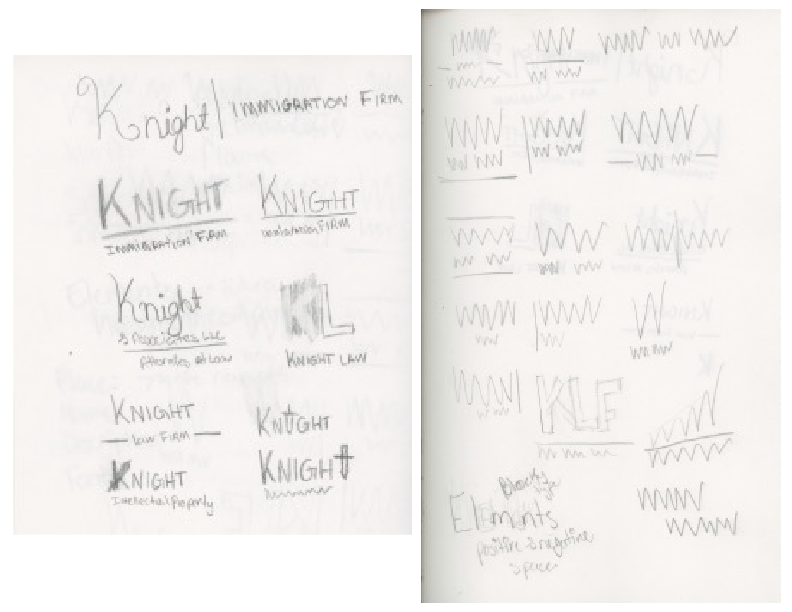 Knight | IMMIGRATION FIRM
KNIGHT
IMMIGRATION FIRM
KNIGHT
IMMIGRATION FIRM
Knight
& Associates, LLC
Attorneys at Law
KL
KNIGHT LAW
KNIGHT
LAW FIRM
KNIGHT
KNIGHT
Intellectual Property
KNIGHT
KLF
Blocky
Elements
positive & negative
space